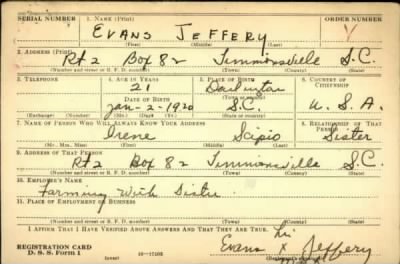 SERIAL NUMBER 1. NAME (Print) ORDER NUMBER
EVANS JEFFERY Y
(First) (Middle) (Last)
2. ADDRESS (Print)
Rt 2 Box 82 Timmonsville S.C.
(Number and street or R. F. D. number) (Town) (County) (State)
3. TELEPHONE 4. AGE IN YEARS 5. PLACE OF BIRTH 6. COUNTRY OF CITIZENSHIP
21 Darlington
DATE OF BIRTH
Jan-2-1920 S.C. U.S.A.
(Exchange) (Number) (Mo.) (Day) (Yr.) (State or country)
7. NAME OF PERSON WHO WILL ALWAYS KNOW YOUR ADDRESS 8. RELATIONSHIP OF THAT PERSON
Irene Scipio Sister
(Mr., Mrs., Miss) (First) (Middle) (Last)
9. ADDRESS OF THAT PERSON
Rt 2 Box 82 Timmonsville S.C.
(Number and street or R. F. D. number) (Town) (County) (State)
10. EMPLOYER'S NAME
Farming With Sister
11. PLACE OF EMPLOYMENT OR BUSINESS
(Number and street or R. F. D. number) (Town) (County) (State)
I AFFIRM THAT I HAVE VERIFIED ABOVE ANSWERS AND THAT THEY ARE TRUE. his
REGISTRATION CARD Evans x Jeffery
D. S. S. Form 1 (over)